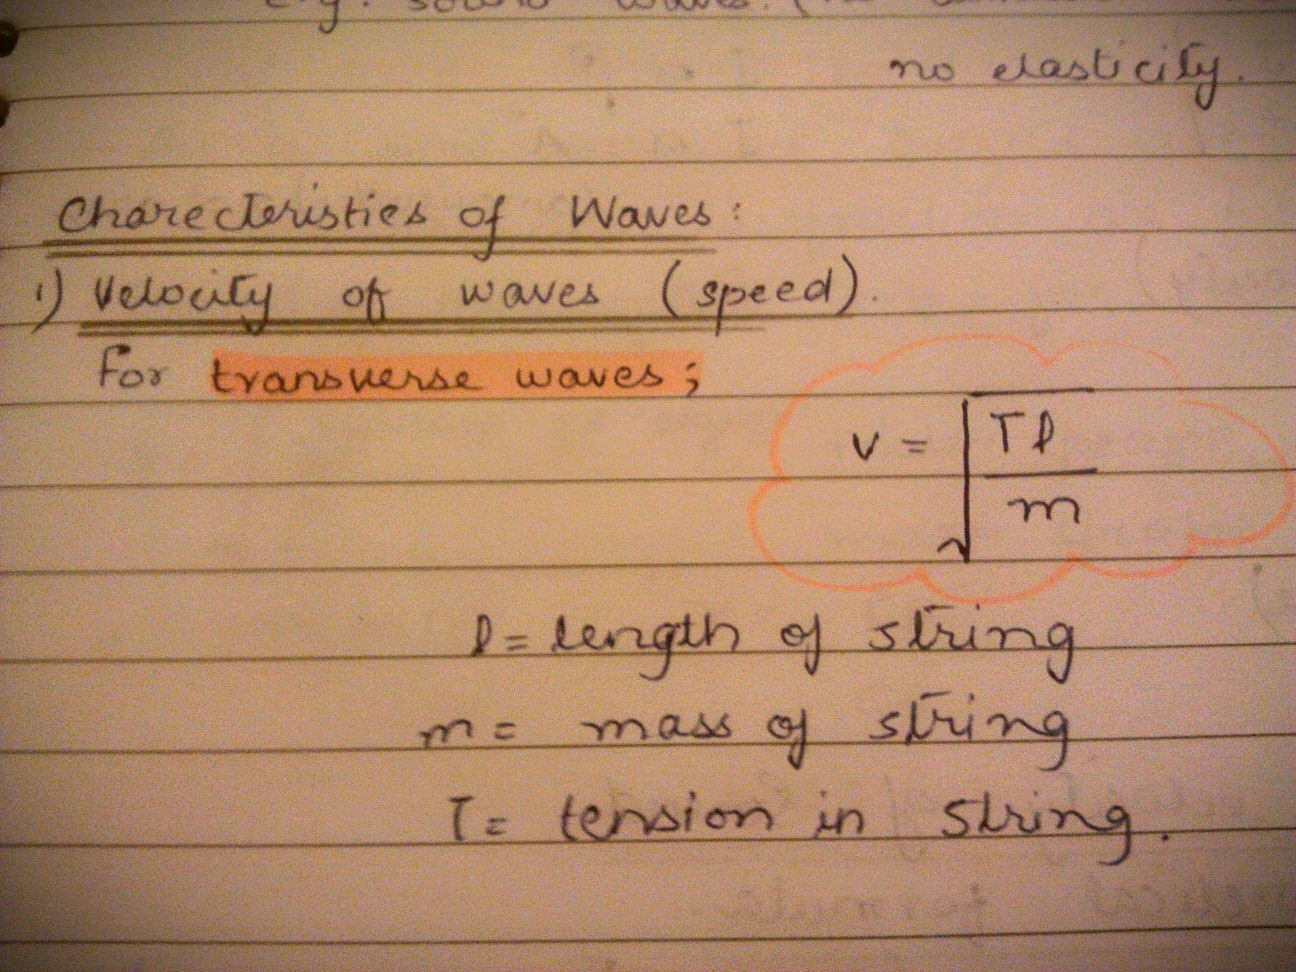 e.g. sound waves. (
no elasticity.
Charecteristics of Waves:
1) Velocity of waves (speed).
For transverse waves;
v = √(Tl/m)
l = length of string
m = mass of string
T = tension in string.